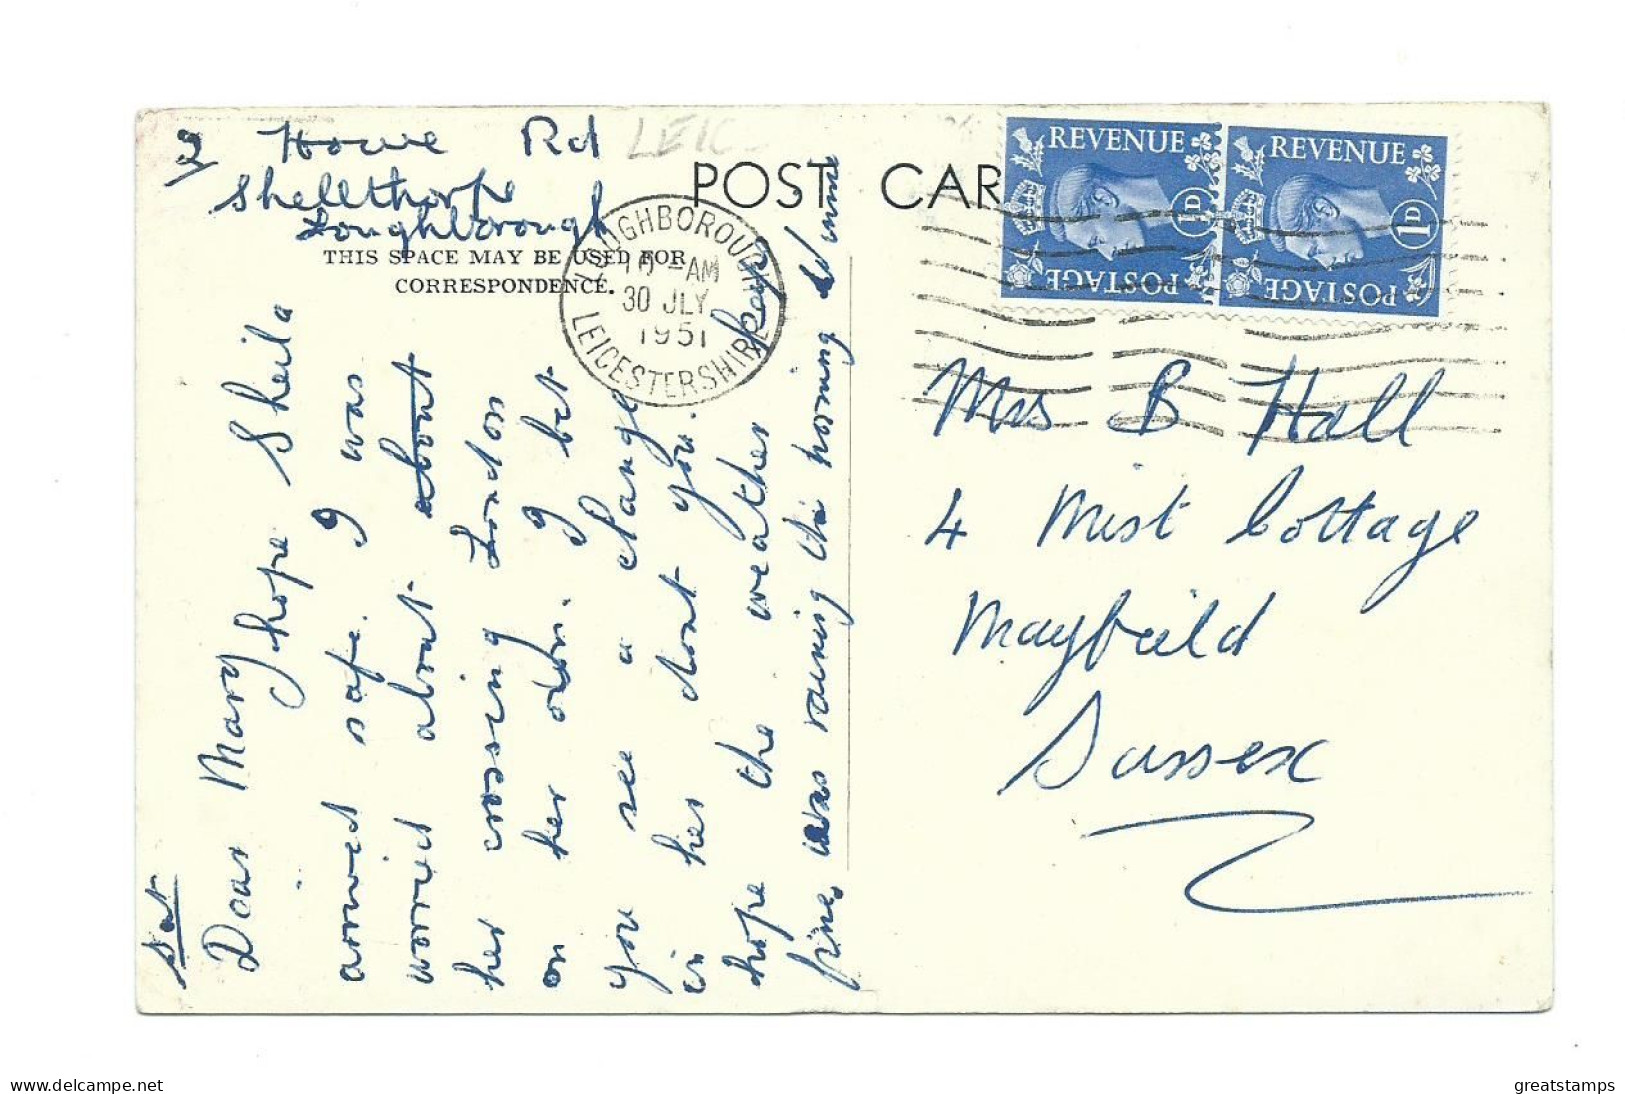 2 Howe Rd
Shellthorpe
Loughborough
LEIC
POST CAR
THIS SPACE MAY BE USED FOR
CORRESPONDENCE.
LOUGHBOROUGH
10 - AM
30 JLY
1951
LEICESTERSHIRE
REVENUE
1D
POSTAGE
REVENUE
1D
POSTAGE
Sat
Dear Mary hope Sheila
arrived safe. I was
worried about about
her crossing London
on her own. I bet
you see a change
in her dont you.
hope the weather keep
fine, was raining this morning
Mrs B Hall
4 Mist Cottage
Mayfeild
Sussex
delcampe.net
greatstamps